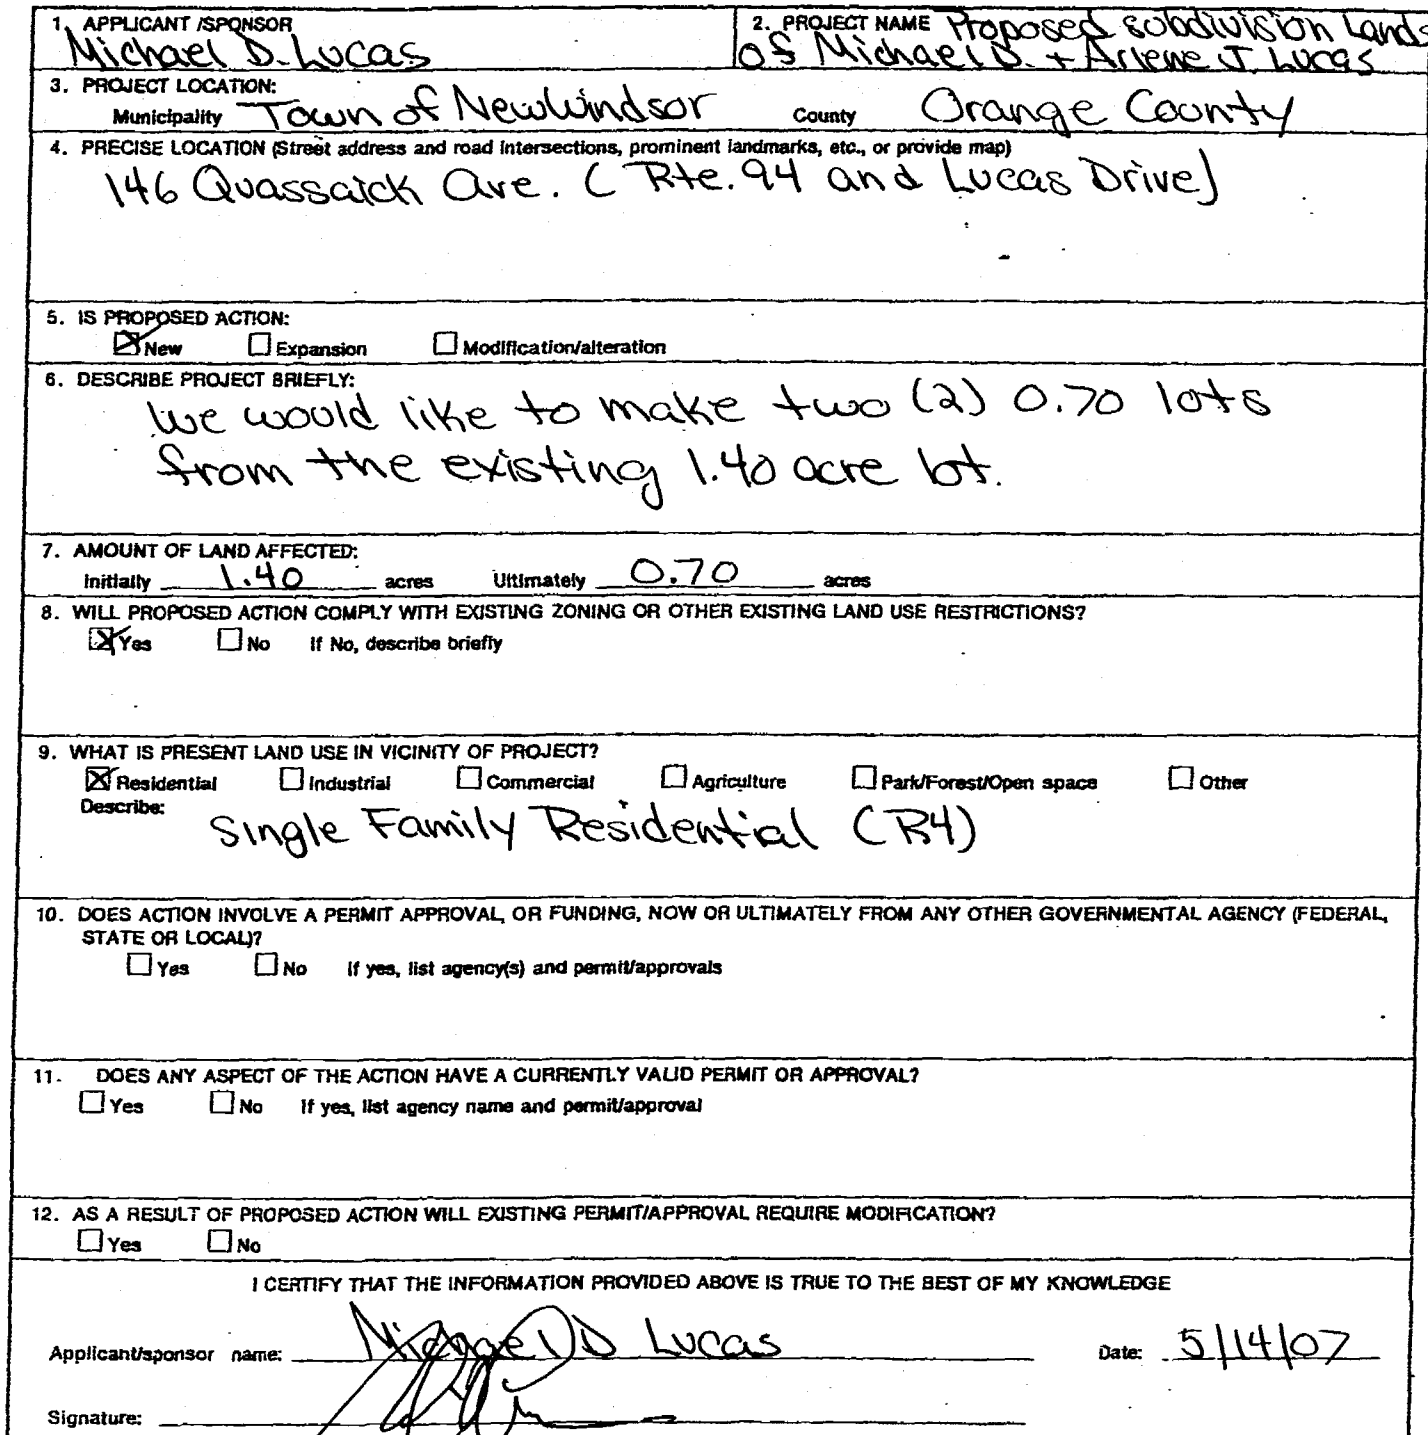 1. APPLICANT /SPONSOR
Michael D. Lucas
2. PROJECT NAME Proposed subdivision Lands
of Michael D. + Arlene J. Lucas
3. PROJECT LOCATION:
Municipality Town of New Windsor County Orange County
4. PRECISE LOCATION (Street address and road intersections, prominent landmarks, etc., or provide map)
146 Quassaick Ave. ( Rte. 94 and Lucas Drive)
5. IS PROPOSED ACTION:
☒ New ☐ Expansion ☐ Modification/alteration
6. DESCRIBE PROJECT BRIEFLY:
We would like to make two (2) 0.70 lots
from the existing 1.40 acre lot.
7. AMOUNT OF LAND AFFECTED:
Initially 1.40 acres Ultimately 0.70 acres
8. WILL PROPOSED ACTION COMPLY WITH EXISTING ZONING OR OTHER EXISTING LAND USE RESTRICTIONS?
☒ Yes ☐ No If No, describe briefly
9. WHAT IS PRESENT LAND USE IN VICINITY OF PROJECT?
☒ Residential ☐ Industrial ☐ Commercial ☐ Agriculture ☐ Park/Forest/Open space ☐ Other
Describe:
Single Family Residential (R4)
10. DOES ACTION INVOLVE A PERMIT APPROVAL, OR FUNDING, NOW OR ULTIMATELY FROM ANY OTHER GOVERNMENTAL AGENCY (FEDERAL,
STATE OR LOCAL)?
☐ Yes ☐ No If yes, list agency(s) and permit/approvals
11. DOES ANY ASPECT OF THE ACTION HAVE A CURRENTLY VALID PERMIT OR APPROVAL?
☐ Yes ☐ No If yes, list agency name and permit/approval
12. AS A RESULT OF PROPOSED ACTION WILL EXISTING PERMIT/APPROVAL REQUIRE MODIFICATION?
☐ Yes ☐ No
I CERTIFY THAT THE INFORMATION PROVIDED ABOVE IS TRUE TO THE BEST OF MY KNOWLEDGE
Applicant/sponsor name: Michael D Lucas Date: 5/14/07
Signature: